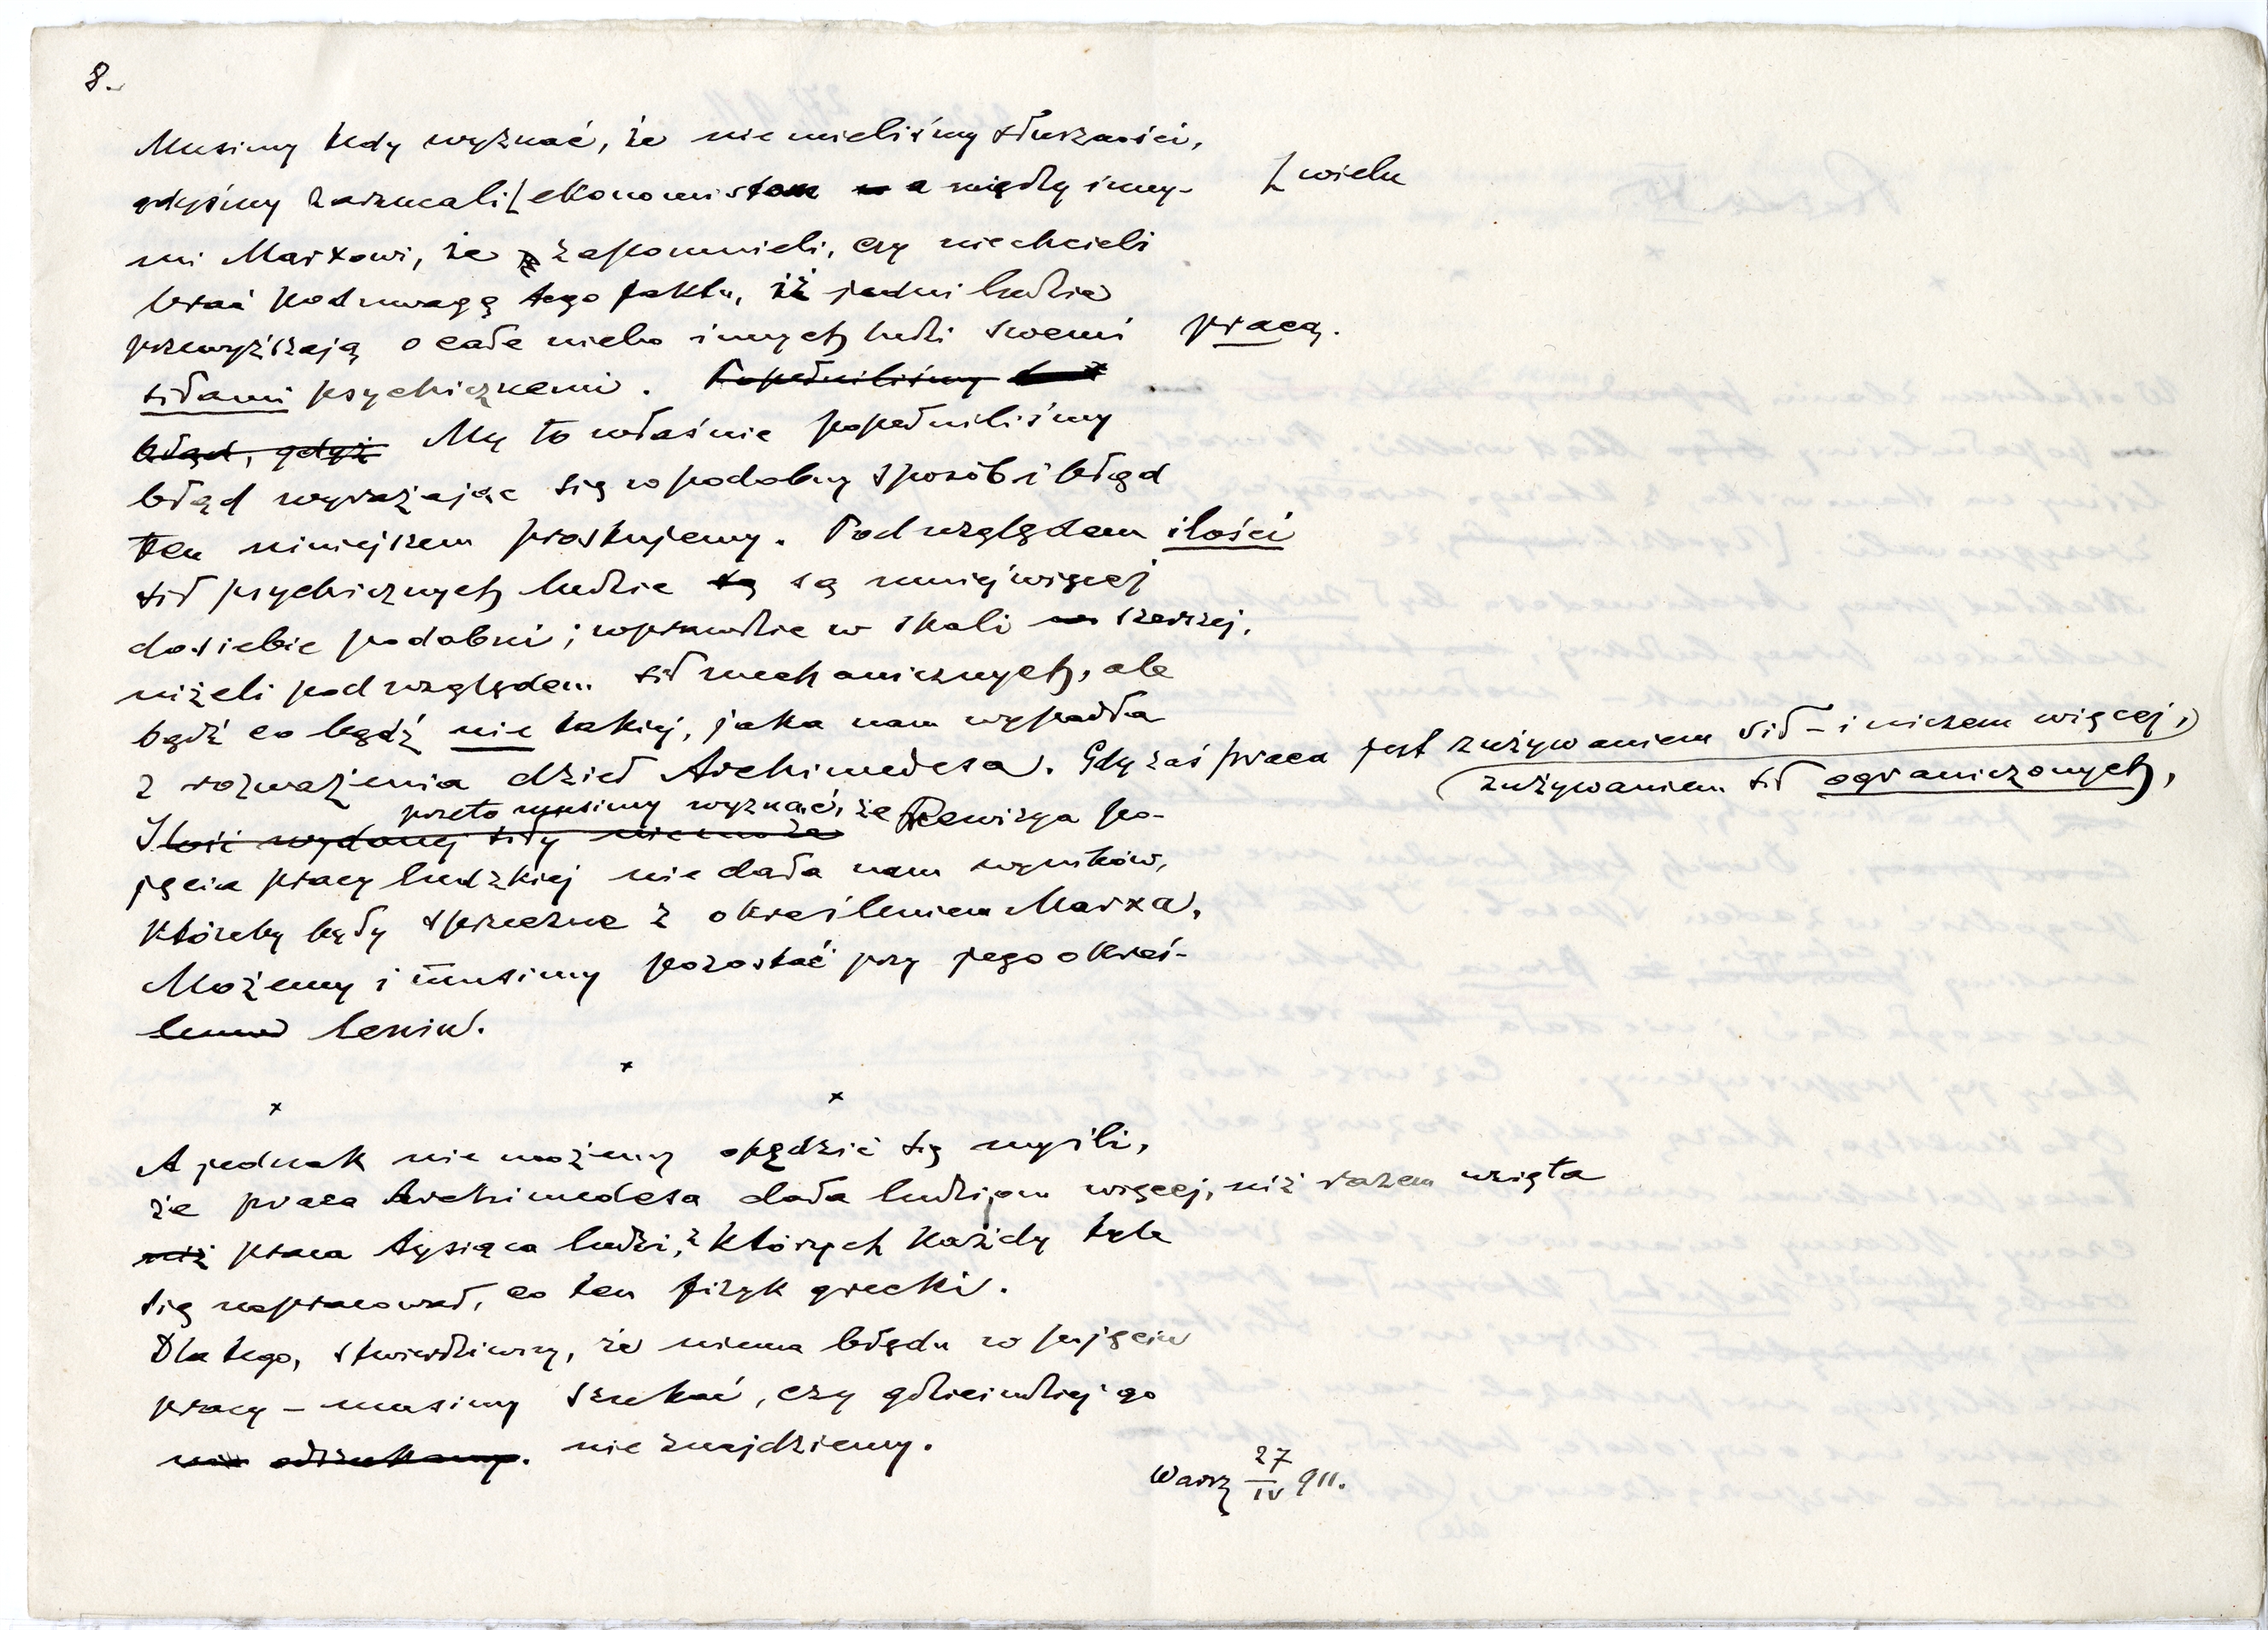 8.
Musimy tedy wyznać, że nie mieliśmy słuszności,
gdyśmy zarzucali [ ekonomistom a między inny- [ wielu
mi Marxowi, że zapomnieli, czy niechcieli
brać pod uwagę tego faktu, iż jedni ludzie
przewyższają o całe niebo innych ludzi swemi pracą.
siłami psychicznemi. Popełniliśmy
błąd, gdyż My to właśnie popełniliśmy
błąd wyrażając się w podobny sposób i błąd
ten niniejszem prostujemy. Pod względem ilości
sił psychicznych ludzie są są mniej więcej
do siebie podobni; wprawdzie w skali szerszej,
niżeli pod względem sił mechanicznych, ale
bądź co bądź nie takiej, jaka nam wypadła
z rozważenia dzieł Archimedesa. Gdy zaś praca jest zużywaniem sił – i niczem więcej,)
(zużywaniem sił ograniczonych,
przeto musimy wyznać, że Rewizya po-
Ilość wydanej siły nie może
jęcia pracy ludzkiej nie dała nam wyników,
któreby były sprzeczne z określeniem Marxa.
Możemy i musimy pozostać przy jego okreś-
leniu.
x
x x
A jednak nie możemy opędzić się myśli,
że praca Archimedesa dała ludziom więcej, niż razem wzięta
niż praca tysiąca ludzi, z których każdy tyle
się napracował, co ten fizyk grecki.
Dla tego, stwierdziwszy, że niema błędu w pojęciu
pracy – musimy szukać, czy gdzieindziej go
nie odszukamy. nie znajdziemy.
Warsz 27/IV 911.